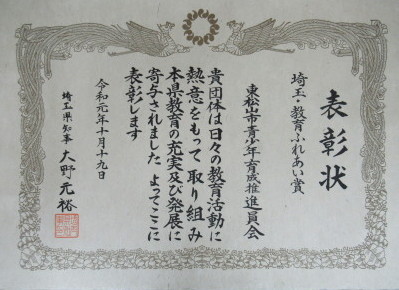 表彰状
埼玉・教育ふれあい賞
東松山市青少年育成推進員会
貴団体は日々の教育活動に
熱意をもって取り組み
本県教育の充実及び発展に
寄与されました よってここに
表彰します
令和元年十月十九日
埼玉県知事 大野元裕